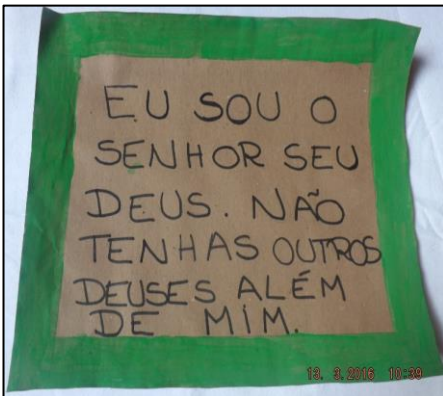 EU SOU O
SENHOR SEU
DEUS. NÃO
TENHAS OUTROS
DEUSES ALÉM
DE MIM.
13. 3.2016 10:39